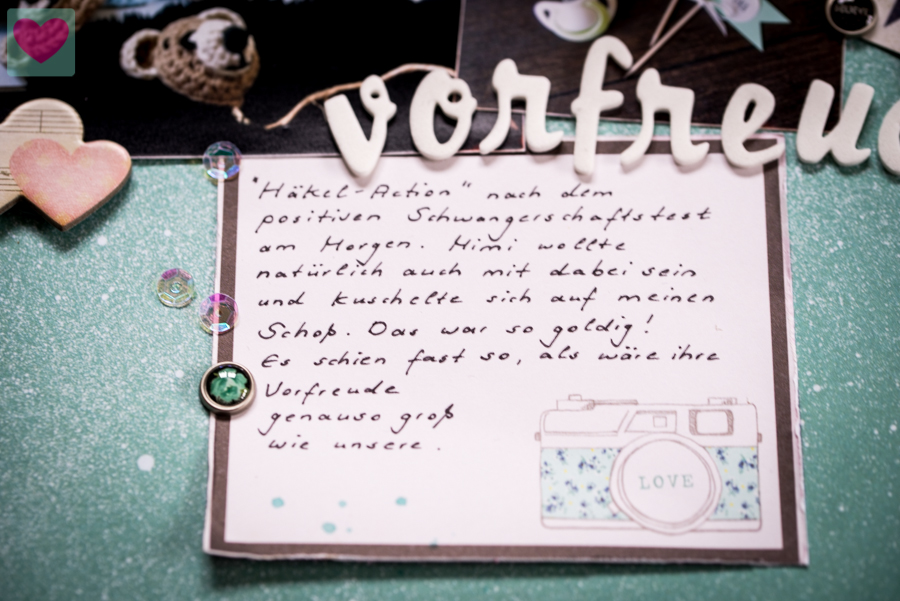 BELIEVE
vorfreud
"Häkel-Action" nach dem
positiven Schwangerschaftstest
am Morgen. Mimi wollte
natürlich auch mit dabei sein
und kuschelte sich auf meinen
Schoß. Das war so goldig!
Es schien fast so, als wäre ihre
Vorfreude
genauso groß
wie unsere.
LOVE